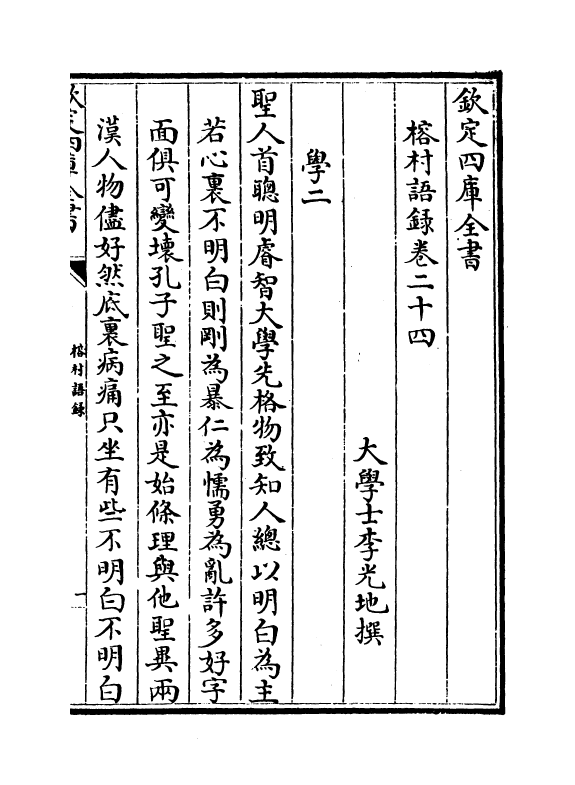 欽定四庫全書
榕村語録卷二十四
大學士李光地撰
學二
聖人首聰明睿智大學先格物致知人總以明白為主
若心裏不明白則剛為暴仁為懦勇為亂許多好字
面俱可變壞孔子聖之至亦是始條理與他聖異兩
漢人物儘好然底裏病痛只坐有些不明白不明白
欽定四庫全書
榕村語録
一